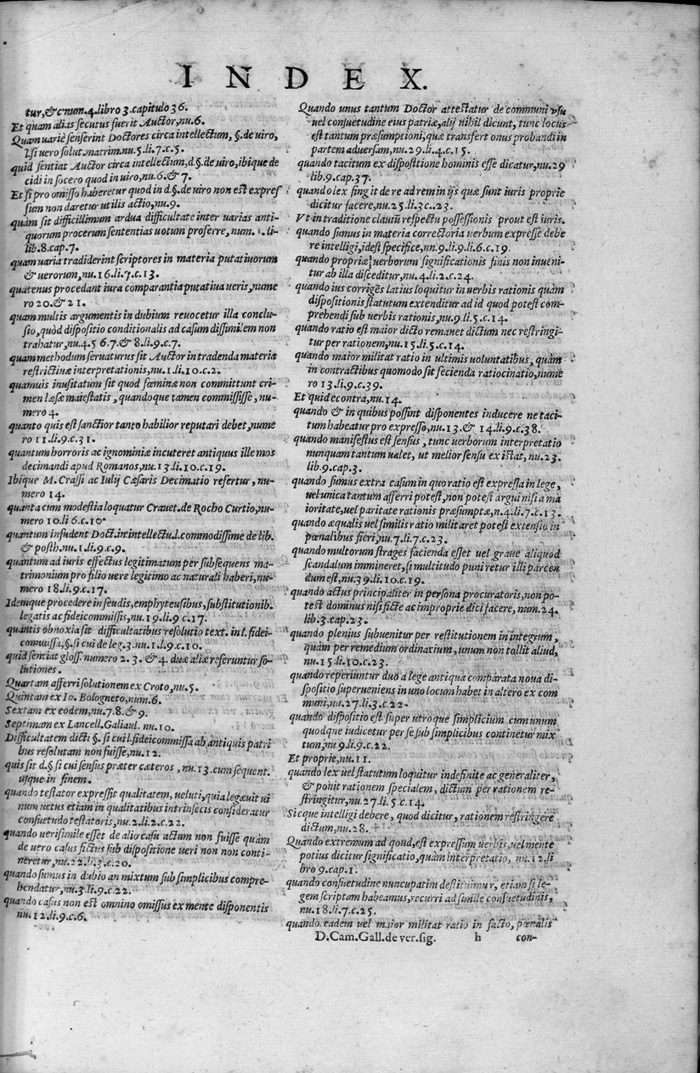 INDEX.
tur, & c num. 4. libro 3. capitulo 36.
Et quam alias secutus fuerit Auctor, nu. 6.
Quam variè senserint Doctores circa intellectum, §. de uiro,
l. si uero solut. matrim. nu. 5. li. 7. c. 5.
quid sentiat Auctor circa intellectum, d. §. de uiro, ibique de
cidi in socero quod in uiro, nu. 6. & 7.
Et si pro omisso haberetur quod in d. §. de uiro non est expres
sum non daretur utilis actio, nu. 9.
quàm sit difficillimum ardua difficultate inter uarias anti-
quorum procerum sententias uotum proferre, num. li-
lib. 8. cap. 7.
quam uaria tradiderint scriptores in materia putatiuorum
& uerorum, nu. 16. li. 7. c. 13.
quatenus procedant iura comparantia putatiua ueris, nume
ro 20. & 21.
quam multis argumentis in dubium reuocetur illa conclu-
sio, quòd dispositio conditionalis ad casum dissimilem non
trahatur, nu. 4. 5 6. 7. & 8. li. 9. c. 7.
quam methodum seruaturus sit Auctor in tradenda materia
restrictiuæ interpretationis, nu. 1. li. 10. c. 2.
quamuis inusitatum sit quod fœminæ non committunt cri-
men læsæ maiestatis, quandoque tamen commisisse, nu-
mero 4.
quanto quis est sanctior tanto habilior reputari debet, nume
ro 11. li. 9. c. 31.
quantum horroris ac ignominiæ incuteret antiquus ille mos
decimandi apud Romanos, nu. 13. li. 10. c. 19.
Ibique M. Crassi ac Iulij Cæsaris Decimatio refertur, nu-
mero 14.
quanta cum modestia loquatur Crauet. de Rocho Curtio, nu-
mero 10. li 6. c. 10
quantum insudent Doct. in intellectu. l. commodissime de lib.
& posth. nu. 1. li. 9. c. 9.
quantum ad iuris effectus legitimatum per subsequens ma-
trimonium pro filio uere legitimo ac naturali haberi, nu-
mero 18. li. 9. c. 17.
Idemque procedere in feudis, emphyteusibus, substitutionib.
legatis ac fideicommissis, nu. 19. li. 9 c. 17.
quantis obnoxia sit difficultatibus resolutio text. in l. fidei-
commissa, §. si cui de leg. 3. nu. 1. l. 9. c. 10.
quid sentiat gloss. numero 2. 3. & 4. duæ aliæ referuntur so-
lutiones.
Quartam afferri solutionem ex Croto, nu. 5.
Quintam ex Io. Bologneto, num. 6.
Sextam ex eodem, nu. 7. 8. & 9.
Septimam ex Lancell. Galiaul. nu. 10.
Difficultatem dicti §. si cui l. fideicommissa ab antiquis patri
bus resolutam non fuisse, nu. 12.
quis sit d. § si cui sensus præter cæteros, nu. 13. cum sequent.
usque in finem.
quando testator expressit qualitatem, ueluti, quia legauit ui
num uetus etiam in qualitatibus intrinsecis consideratur
consuetudo testatoris, nu. 2. li. 2. c. 22.
quando uerisimile esset de alio casu actum non fuisse quàm
de uero casus fictus sub dispositione ueri non non conti-
neretur, nu. 22. li. 3. c. 20.
quando sumus in dubio an mixtum sub simplicibus compre-
hendatur, nu. 3. li. 9. c. 22.
quando casus non est omnino omissus ex mente disponentis
nu. 12. li. 9. c. 6.
Quando unus tantum Doctor attestatur de communi usu
uel consuetudine eius patriæ, alij nihil dicunt, tunc locus
est tantum præsumptioni, quæ transfert onus probandi in
partem aduersam, nu. 29. li. 4. c. 15.
quando tacitum ex dispositione hominis esse dicatur, nu. 29
lib. 9. cap. 37.
quando lex fingit de re ad rem in ijs quæ sunt iuris propriè
dicitur facere, nu. 25. li. 3. c. 23.
Vt in traditione clauiũ respectu possessionis prout est iuris.
quando sumus in materia correctoria uerbum expresse debe
re intelligi, idest specifice, nn. 9. li. 9. li. 6. c. 19.
quando propria uerborum significationis finis non inueni
tur ab illa disceditur, nu. 4. li. 2. c. 24.
quando ius corrigẽs latius loquitur in uerbis rationis quàm
dispositionis statutum extenditur ad id quod potest com-
prehendi sub uerbis rationis, nu. 9. li. 5. c. 14.
quando ratio est maior dicto remanet dictum nec restringi-
tur per rationem, nu. 15. li. 5. c. 14.
quando maior militat ratio in ultimis uoluntatibus, quàm
in contractibus quomodo sit fecienda ratiocinatio, nume
ro 13. li. 9. c. 39.
Et quid econtra, nu. 14.
quando & in quibus possint disponentes inducere ne taci-
tum habeatur pro expresso, nu. 13. & 14. li. 9. c. 38.
quando manifestus est sensus, tunc uerborum interpretatio
nunquam tantum ualet, ut melior sensu existat, nu. 23.
lib. 9. cap. 3.
quando sumus extra casum in quo ratio est expressa in lege,
uel unica tantum afferri potest, non potest argui nisi a ma
ioritate, uel paritate rationis præsumptæ, n. 4. li. 7. c. 13.
quando æqualis uel similis ratio militaret potest extensio in
pœnalibus fieri, nu. 7. li. 7. c. 23.
quando multorum strages facienda esset uel graue aliquod
scandalum immineret, si multitudo puniretur illi parcen
dum est, nu. 39. li. 10. c. 19.
quando actus principaliter in persona procuratoris, non po-
test dominus nisi ficte ac improprie dici facere, num. 24.
lib. 3. cap. 23.
quando plenius subuenitur per restitutionem in integrum,
quàm per remedium ordinarium, unum non tollit aliud,
nu. 15. li. 10. c. 23.
quando reperiuntur duo a lege antiqua comparata noua di-
spositio superueniens in uno locum habet in altero ex com
muni, nu. 27. li. 3. c. 22-
quando dispositio est super utroque simplicium cum unum
quodque iudicetur per se sub simplicibus continetur mix
tum, nu. 9. li. 9. c. 22.
Et proprie, nu. 11.
quando lex uel statutum loquitur indefinite ac generaliter,
& ponit rationem specialem, dictum per rationem re-
stringitur, nu. 27. li. 5 c. 14.
Sicque intelligi debere, quod dicitur, rationem restringere
dictum, nu. 28.
Quando extremum ad quod, est expressum uerbis, uel mente
potius dicitur significatio, quàm interpretatio, nu. 12. li
bro 9. cap. 1.
quando consuetudine nuncupatim destituimur, etiam si le-
gem scriptam habeamus, recurri ad similè consuetudinis,
nu. 18. li. 7. c. 25.
quando eadem uel maior militat ratio in facto, pœnalis
D. Cam. Gall. de ver. sig. h con-